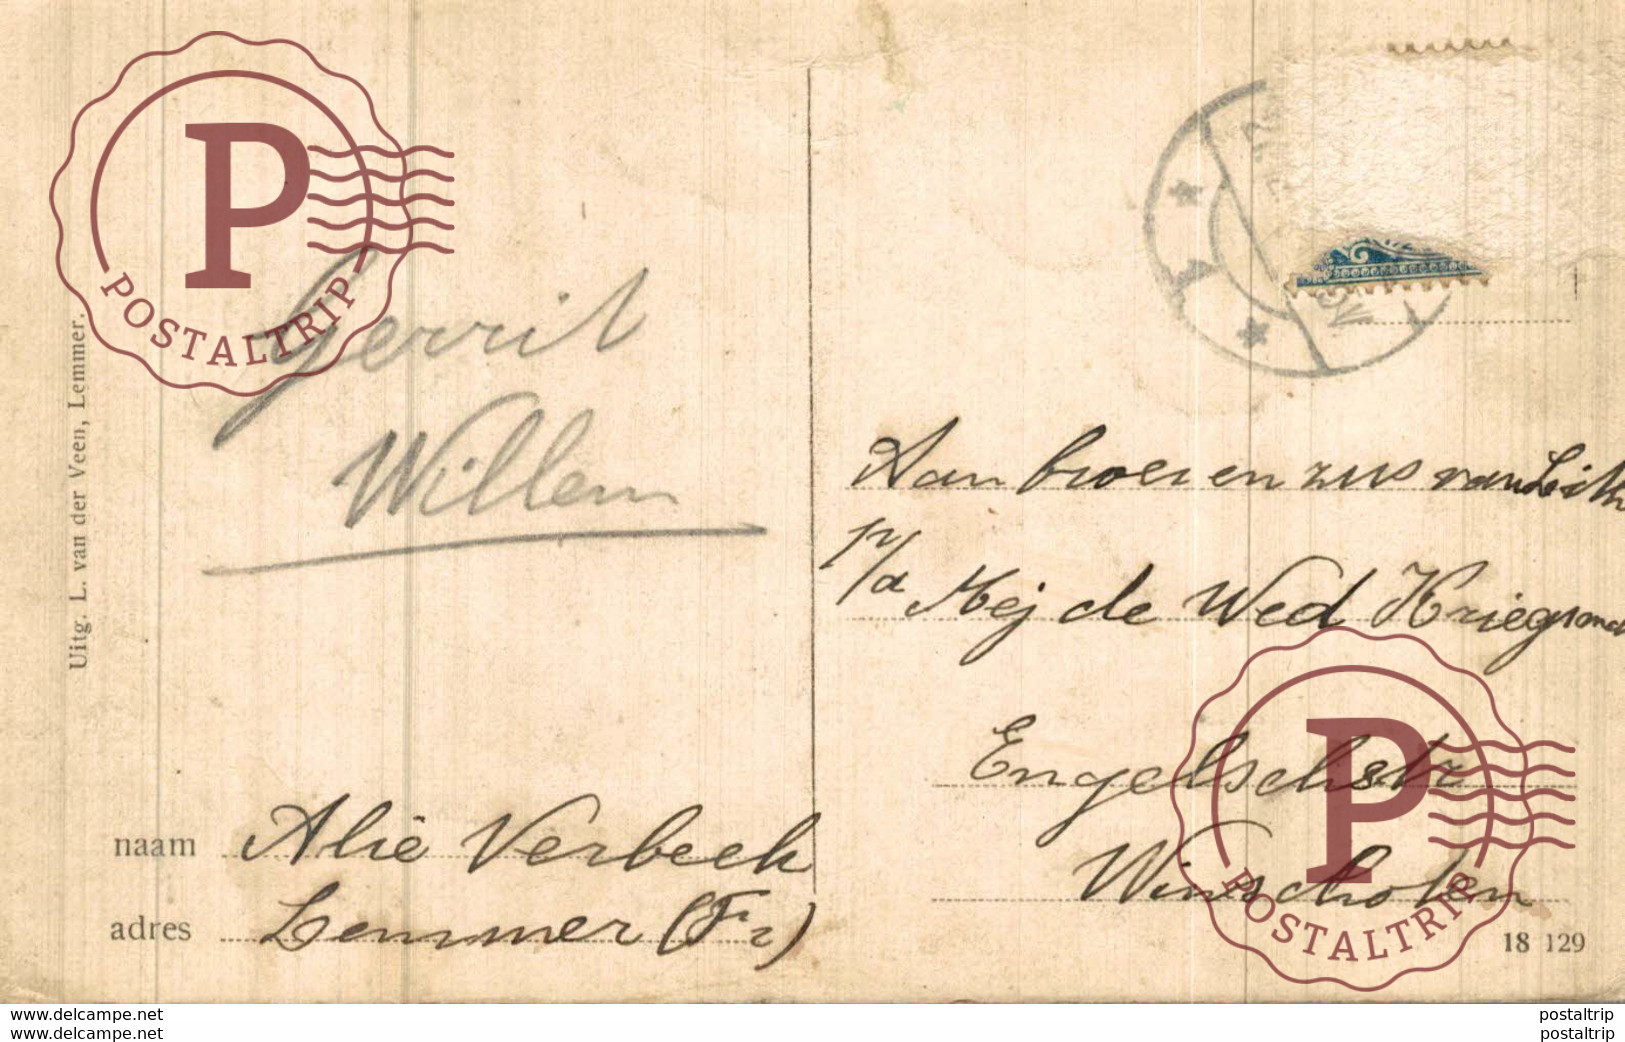 POSTALTRIP
Uitg. L. van der Veen, Lemmer.
Gerrit
Willem
naam Alie Verbeek
adres Lemmer (Fr)
Aan broer en zus van
p/a Mej de Wed
Engelschstr
Winschoten
18 129
POSTALTRIP
www.delcampe.net
www.delcampe.net
postaltrip
postaltrip